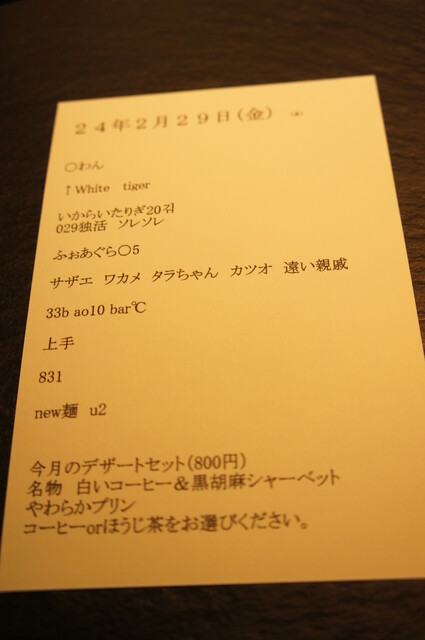 ２４年２月２９日(金)
○わん
↑White tiger
いからいたりぎ20김
029独活 ソレソレ
ふぉあぐら○5
サザエ ワカメ タラちゃん カツオ 遠い親戚
33b ao10 bar℃
上手
831
new麺 u2
今月のデザートセット(800円)
名物 白いコーヒー＆黒胡麻シャーベット
やわらかプリン
コーヒーorほうじ茶をお選びください。